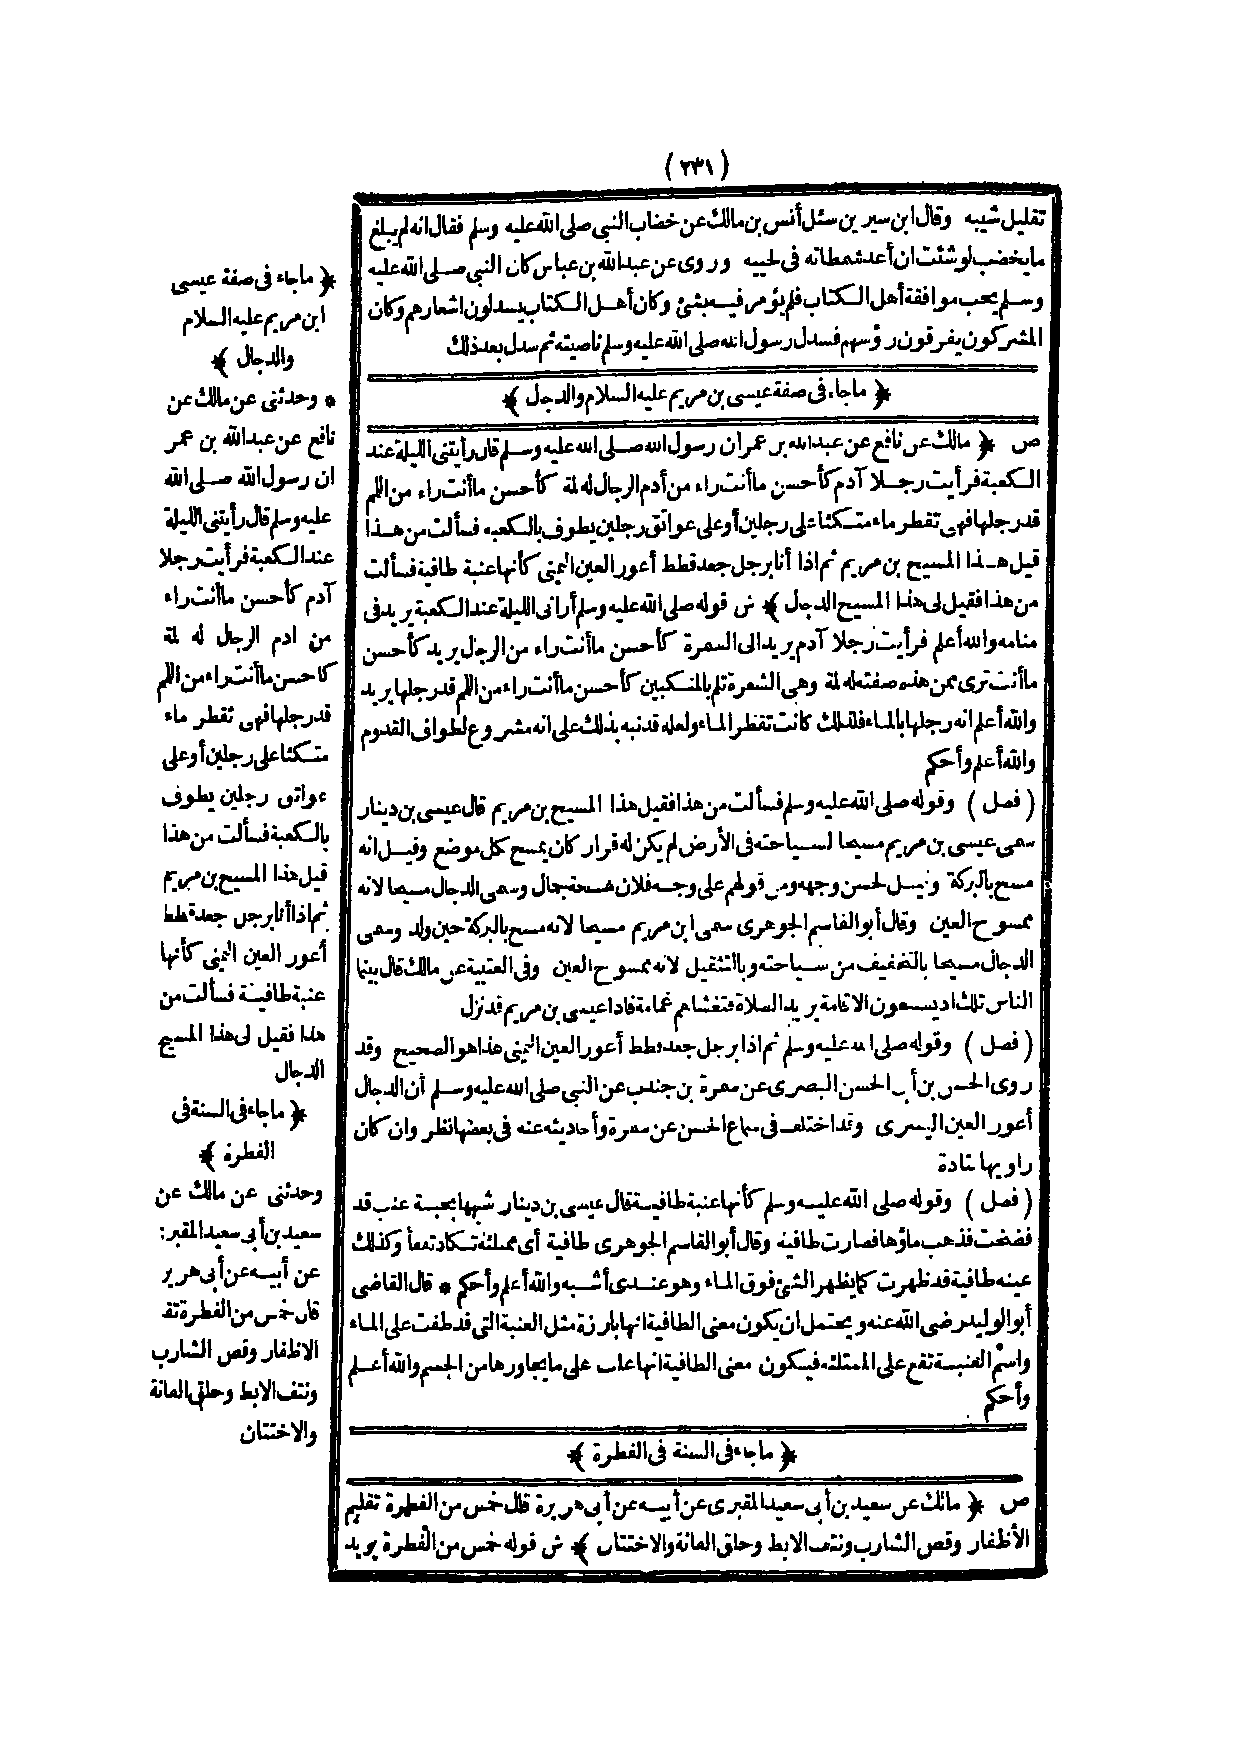 (٢٣١)
تقليل شيبه وقال ابن سيرين سئل أنس بن مالك عن خضاب النبي صلى الله عليه وسلم فقال انه لم يبلغ
ما يخضب لو شئت ان أعد شمطاته فى لحيته وروى عن عبد الله بن عباس كان النبي صلى الله عليه
وسلم يحب موافقة أهل الكتاب فلم يؤمر فيه بشئ وكان أهل الكتاب يسدلون اشعارهم وكان
المشركون يفرقون رؤسهم فسدل رسول الله صلى الله عليه وسلم ناصيته ثم سدل بعد ذلك
﴿ ماجاء فى صفة عيسى بن مريم عليه السلام والدجال ﴾
ص ﴿ مالك عن نافع عن عبد الله بن عمر أن رسول الله صلى الله عليه وسلم قال رأيتنى الليلة عند
الكعبة فرأيت رجلا آدم كأحسن ما أنت راء من أدم الرجال له لمة كأحسن ما أنت راء من اللمم
قد رجلها فهى تقطر ماء متكئا على رجلين أو على عواتق رجلين يطوف بالكعبه فسألت من هذا
قيل هذا المسيح بن مريم ثم اذا أنا برجل جعد قطط أعور العين اليمنى كأنها عنبة طافية فسألت
من هذا فقيل لى هذا المسيح الدجال ﴾ ش قوله صلى الله عليه وسلم أرانى الليلة عند الكعبة يريد فى
منامه والله أعلم فرأيت رجلا آدم يريد الى السمرة كأحسن ما أنت راء من الرجال يريد كأحسن
ما أنت ترى ممن هذه صفته له لمة وهى الشعرة تلم بالمنكبين كأحسن ما أنت راء من اللمم قد رجلها يريد
والله أعلم انه رجلها بالماء فلذلك كانت تقطر الماء ولعله قد نبه بذلك على انه مشروع لطواف القدوم
والله أعلم وأحكم
(فصل) وقوله صلى الله عليه وسلم فسألت من هذا فقيل هذا المسيح بن مريم قال عيسى بن دينار
سمى عيسى بن مريم مسيحا لسياحته فى الأرض لم يكن له قرار كان يمسح كل موضع وقيل انه
مسح بالبركة وقيل لحسن وجهه ومن قولهم على وجه فلان مسحة جمال وسمى الدجال مسيحا لانه
ممسوح العين وقال أبو القاسم الجوهرى سمى ابن مريم مسيحا لانه مسح بالبركة حين ولد وسمى
الدجال مسيحا بالتخفيف من سياحته وبالتثقيل لانه ممسوح العين وفى العتبية عن مالك قال بينما
الناس تلك اذ يسمعون الاقامة يريد الصلاة فتغشاهم غمامة فاذا عيسى بن مريم قد نزل
(فصل) وقوله صلى الله عليه وسلم ثم اذا برجل جعد قطط أعور العين اليمنى هذا هو الصحيح وقد
روى الحسن بن أبى الحسن البصرى عن سمرة بن جندب عن النبي صلى الله عليه وسلم أن الدجال
أعور العين اليسرى وقد اختلف فى سماع الحسن عن سمرة وأحاديثه عنه فى بعضها نظر وان كان
راويها قتادة
(فصل) وقوله صلى الله عليه وسلم كأنها عنبة طافية قال عيسى بن دينار شبهها بحبة عنب قد
فضخت فذهب ماؤها فصارت طافية وقال أبو القاسم الجوهرى طافية أى ممتلئة تكاد تفقأ وكذلك
عينه طافية قد ظهرت كما يظهر الشئ فوق الماء وهو عندى أشبه والله أعلم وأحكم * قال القاضى
أبو الوليد رضى الله عنه ويحتمل ان يكون معنى الطافية انها بارزة مثل العنبة التى قد طفت على الماء
واسم العنبسة تقع على الممتلئه فيكون معنى الطافية انها علت على ما يجاورها من الجسم والله أعلم
وأحكم
﴿ ماجاء فى السنة فى الفطرة ﴾
ص ﴿ مالك عن سعيد بن أبى سعيد المقبرى عن أبيه عن أبى هريرة قال خمس من الفطرة تقليم
الأظفار وقص الشارب ونتف الابط وحلق العانة والاختتان ﴾ ش قوله خمس من الفطرة يريد
﴿ ماجاء فى صفة عيسى
ابن مريم عليه السلام
والدجال ﴾
* وحدثنى عن مالك عن
نافع عن عبد الله بن عمر
ان رسول الله صلى الله
عليه وسلم قال رأيتنى الليلة
عند الكعبة فرأيت رجلا
آدم كأحسن ما أنت راء
من ادم الرجال له لمة
كأحسن ما أنت راء من اللمم
قد رجلها فهى تقطر ماء
متكئا على رجلين أو على
عواتق رجلين يطوف
بالكعبة فسألت من هذا
قيل هذا المسيح بن مريم
ثم اذا أنا برجل جعد قطط
أعور العين اليمنى كأنها
عنبة طافية فسألت من
هذا فقيل لى هذا المسيح
الدجال
﴿ ماجاء فى السنة فى
الفطرة ﴾
وحدثنى عن مالك عن
سعيد بن أبى سعيد المقبر
عن أبيه عن أبى هرير
قال خمس من الفطرة تقـ
الاظفار وقص الشارب
ونتف الابط وحلق العانة
والاختتان